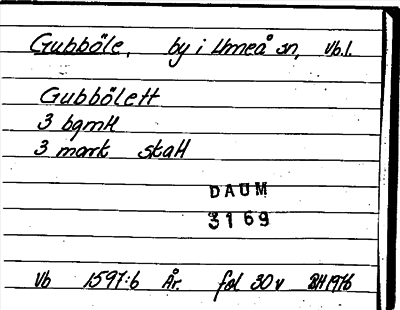 Gubböle, by i Umeå sn, Vb.l.
Gubbölett
3 bgmtt
3 mark skatt
DAUM
3169
Vb 1597:6 År. fol 30v BH 1976